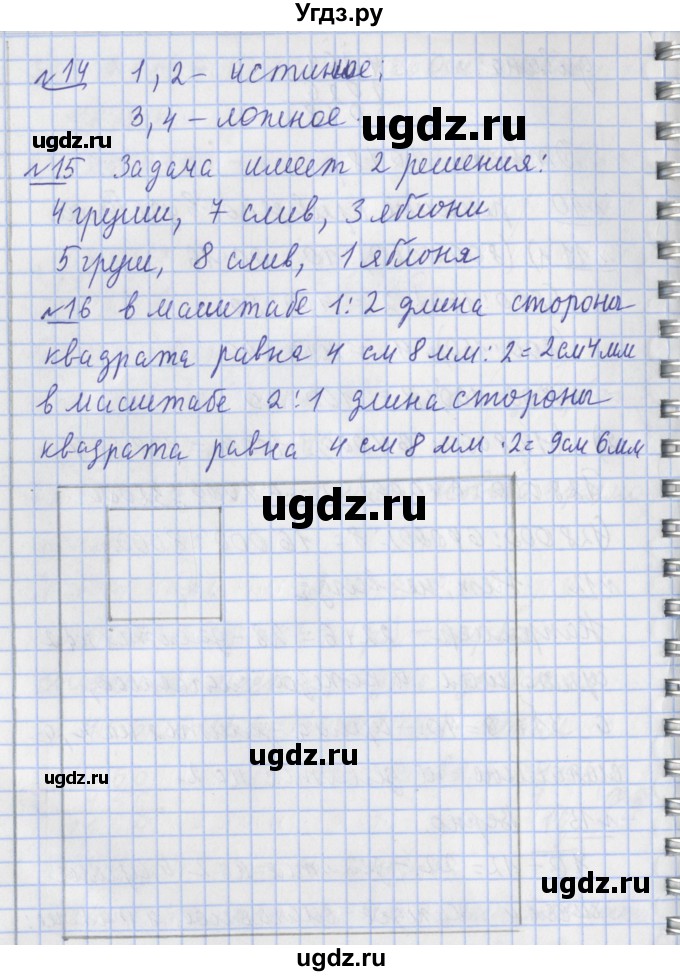 Угдз.ру
№14 1, 2 – истинное;
3, 4 – ложное.
ugdz.ru
ugdz.ru
№15 Задача имеет 2 решения:
4 груши, 7 слив, 3 яблони
5 груш, 8 слив, 1 яблоня
№16 в масштабе 1:2 длина стороны
квадрата равна 4 см 8 мм : 2 = 2 см 4 мм
в масштабе 2:1 длина стороны
квадрата равна 4 см 8 мм · 2 = 9 см 6 мм
ugdz.ru
ugdz.ru
ugdz.ru
ugdz.ru
ugdz.ru